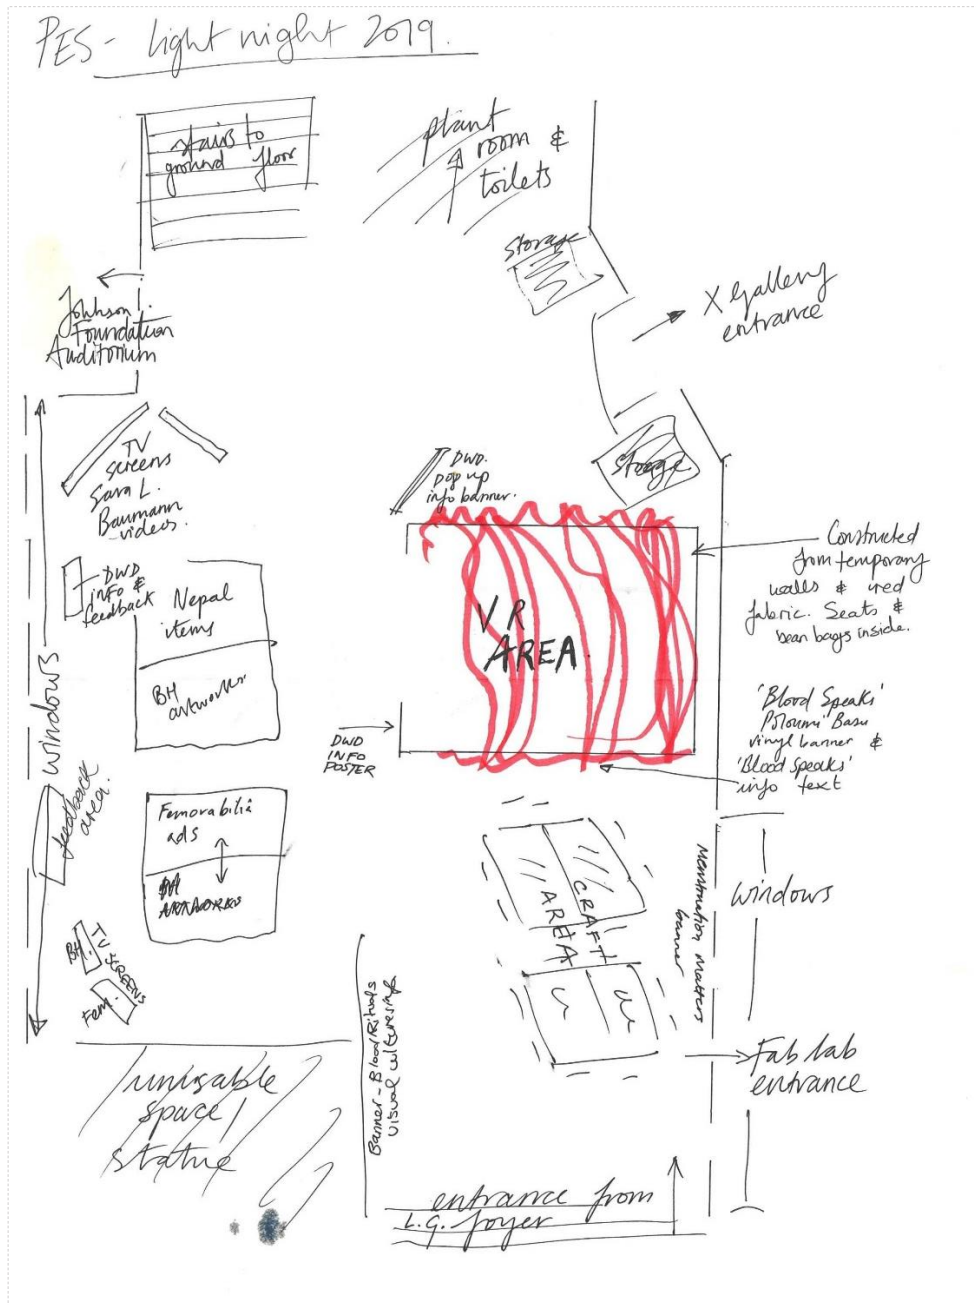 PES - light night 2019.
stairs to
ground floor
plant
room &
toilets
Storage
X Gallery
entrance
Johnson
Foundation
Auditorium
TV
screens
Sara L.
Baumann
videos.
DWD.
pop up
info banner.
Storage
Constructed
from temporary
walls & red
fabric. Seats &
bean bags inside.
DWD
info &
feedback
Nepal
items
BH
artworks
VR
AREA.
windows
DWD
INFO
POSTER
'Blood Speaks'
Poloumi Basu
vinyl banner &
'Blood Speaks'
info text
feedback
area.
Femorabilia
ads
ARTWORKS
CRAFT
AREA
Menstruation Matters
banner
windows
BH.
TV SCREENS
Fem.
Banner - Blood Rituals
visual
Fab lab
entrance
unusable
space /
statue
entrance from
L.G. foyer